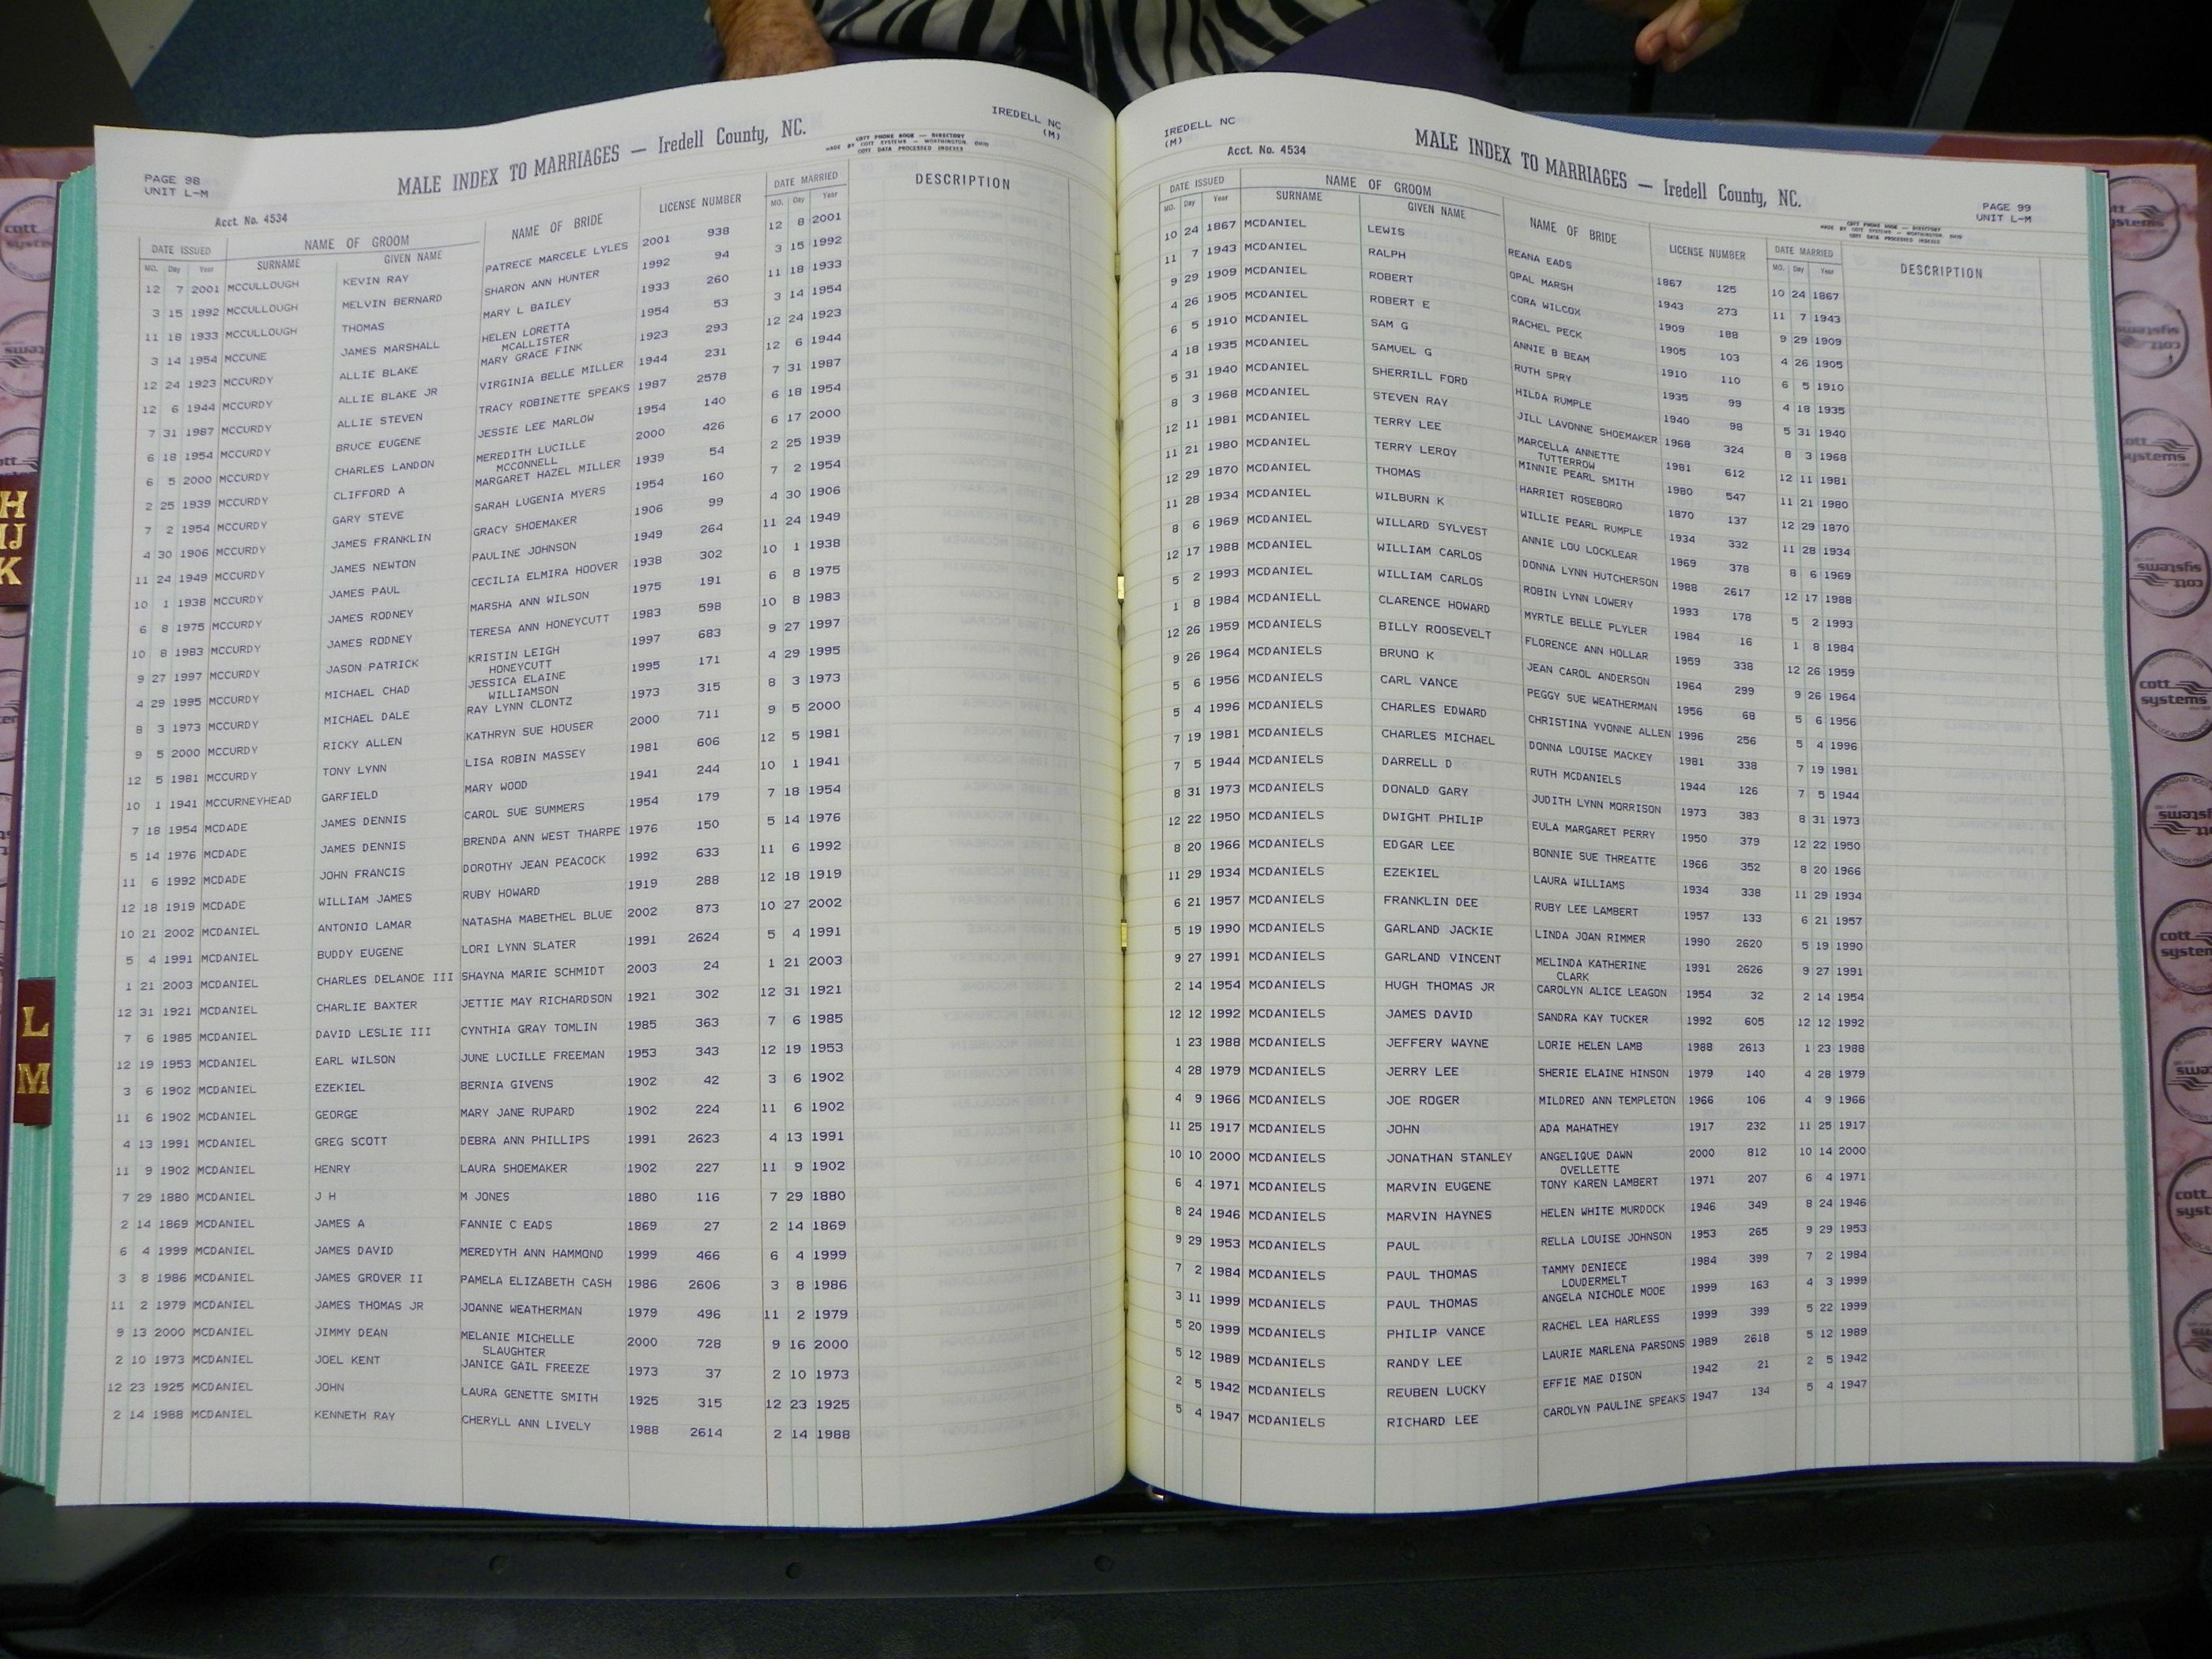 PAGE 98
UNIT L-M
MALE INDEX TO MARRIAGES — Iredell County, NC.
MADE BY COTT PHONE BOOK — DIRECTORY
COTT SYSTEMS — WORTHINGTON, OHIO
COTT DATA PROCESSED INDEXES
IREDELL NC
(M)
Acct. No. 4534
DATE ISSUED NAME OF GROOM NAME OF BRIDE LICENSE NUMBER DATE MARRIED DESCRIPTION
MO. Day Year SURNAME GIVEN NAME MO. Day Year
12 7 2001 MCCULLOUGH KEVIN RAY PATRECE MARCELE LYLES 2001 938 12 8 2001
3 15 1992 MCCULLOUGH MELVIN BERNARD SHARON ANN HUNTER 1992 94 3 15 1992
11 18 1933 MCCULLOUGH THOMAS MARY L BAILEY 1933 260 11 18 1933
3 14 1954 MCCUNE JAMES MARSHALL HELEN LORETTA 1954 53 3 14 1954
MCALLISTER
12 24 1923 MCCURDY ALLIE BLAKE MARY GRACE FINK 1923 293 12 24 1923
12 6 1944 MCCURDY ALLIE BLAKE JR VIRGINIA BELLE MILLER 1944 231 12 6 1944
7 31 1987 MCCURDY ALLIE STEVEN TRACY ROBINETTE SPEAKS 1987 2578 7 31 1987
6 18 1954 MCCURDY BRUCE EUGENE JESSIE LEE MARLOW 1954 140 6 18 1954
6 5 2000 MCCURDY CHARLES LANDON MEREDITH LUCILLE 2000 426 6 17 2000
MCCONNELL
2 25 1939 MCCURDY CLIFFORD A MARGARET HAZEL MILLER 1939 54 2 25 1939
7 2 1954 MCCURDY GARY STEVE SARAH LUGENIA MYERS 1954 160 7 2 1954
4 30 1906 MCCURDY JAMES FRANKLIN GRACY SHOEMAKER 1906 99 4 30 1906
11 24 1949 MCCURDY JAMES NEWTON PAULINE JOHNSON 1949 264 11 24 1949
10 1 1938 MCCURDY JAMES PAUL CECILIA ELMIRA HOOVER 1938 302 10 1 1938
6 8 1975 MCCURDY JAMES RODNEY MARSHA ANN WILSON 1975 191 6 8 1975
10 8 1983 MCCURDY JAMES RODNEY TERESA ANN HONEYCUTT 1983 598 10 8 1983
9 27 1997 MCCURDY JASON PATRICK KRISTIN LEIGH 1997 683 9 27 1997
HONEYCUTT
4 29 1995 MCCURDY MICHAEL CHAD JESSICA ELAINE 1995 171 4 29 1995
WILLIAMSON
8 3 1973 MCCURDY MICHAEL DALE RAY LYNN CLONTZ 1973 315 8 3 1973
9 5 2000 MCCURDY RICKY ALLEN KATHRYN SUE HOUSER 2000 711 9 5 2000
12 5 1981 MCCURDY TONY LYNN LISA ROBIN MASSEY 1981 606 12 5 1981
10 1 1941 MCCURNEYHEAD GARFIELD MARY WOOD 1941 244 10 1 1941
7 18 1954 MCDADE JAMES DENNIS CAROL SUE SUMMERS 1954 179 7 18 1954
5 14 1976 MCDADE JAMES DENNIS BRENDA ANN WEST THARPE 1976 150 5 14 1976
11 6 1992 MCDADE JOHN FRANCIS DOROTHY JEAN PEACOCK 1992 633 11 6 1992
12 18 1919 MCDADE WILLIAM JAMES RUBY HOWARD 1919 288 12 18 1919
10 21 2002 MCDANIEL ANTONIO LAMAR NATASHA MABETHEL BLUE 2002 873 10 27 2002
5 4 1991 MCDANIEL BUDDY EUGENE LORI LYNN SLATER 1991 2624 5 4 1991
1 21 2003 MCDANIEL CHARLES DELANOE III SHAYNA MARIE SCHMIDT 2003 24 1 21 2003
12 31 1921 MCDANIEL CHARLIE BAXTER JETTIE MAY RICHARDSON 1921 302 12 31 1921
7 6 1985 MCDANIEL DAVID LESLIE III CYNTHIA GRAY TOMLIN 1985 363 7 6 1985
12 19 1953 MCDANIEL EARL WILSON JUNE LUCILLE FREEMAN 1953 343 12 19 1953
3 6 1902 MCDANIEL EZEKIEL BERNIA GIVENS 1902 42 3 6 1902
11 6 1902 MCDANIEL GEORGE MARY JANE RUPARD 1902 224 11 6 1902
4 13 1991 MCDANIEL GREG SCOTT DEBRA ANN PHILLIPS 1991 2623 4 13 1991
11 9 1902 MCDANIEL HENRY LAURA SHOEMAKER 1902 227 11 9 1902
7 29 1880 MCDANIEL J H M JONES 1880 116 7 29 1880
2 14 1869 MCDANIEL JAMES A FANNIE C EADS 1869 27 2 14 1869
6 4 1999 MCDANIEL JAMES DAVID MEREDYTH ANN HAMMOND 1999 466 6 4 1999
3 8 1986 MCDANIEL JAMES GROVER II PAMELA ELIZABETH CASH 1986 2606 3 8 1986
11 2 1979 MCDANIEL JAMES THOMAS JR JOANNE WEATHERMAN 1979 496 11 2 1979
9 13 2000 MCDANIEL JIMMY DEAN MELANIE MICHELLE 2000 728 9 16 2000
SLAUGHTER
2 10 1973 MCDANIEL JOEL KENT JANICE GAIL FREEZE 1973 37 2 10 1973
12 23 1925 MCDANIEL JOHN LAURA GENETTE SMITH 1925 315 12 23 1925
2 14 1988 MCDANIEL KENNETH RAY CHERYLL ANN LIVELY 1988 2614 2 14 1988
IREDELL NC
(M)
Acct. No. 4534
MALE INDEX TO MARRIAGES — Iredell County, NC.
MADE BY COTT PHONE BOOK — DIRECTORY
COTT SYSTEMS — WORTHINGTON, OHIO
COTT DATA PROCESSED INDEXES
PAGE 99
UNIT L-M
DATE ISSUED NAME OF GROOM NAME OF BRIDE LICENSE NUMBER DATE MARRIED DESCRIPTION
MO. Day Year SURNAME GIVEN NAME MO. Day Year
10 24 1867 MCDANIEL LEWIS REANA EADS 1867 125 10 24 1867
11 7 1943 MCDANIEL RALPH OPAL MARSH 1943 273 11 7 1943
9 29 1909 MCDANIEL ROBERT CORA WILCOX 1909 188 9 29 1909
4 26 1905 MCDANIEL ROBERT E RACHEL PECK 1905 103 4 26 1905
6 5 1910 MCDANIEL SAM G ANNIE B BEAM 1910 110 6 5 1910
4 18 1935 MCDANIEL SAMUEL G RUTH SPRY 1935 99 4 18 1935
5 31 1940 MCDANIEL SHERRILL FORD HILDA RUMPLE 1940 98 5 31 1940
8 3 1968 MCDANIEL STEVEN RAY JILL LAVONNE SHOEMAKER 1968 324 8 3 1968
12 11 1981 MCDANIEL TERRY LEE MARCELLA ANNETTE 1981 612 12 11 1981
TUTTERROW
11 21 1980 MCDANIEL TERRY LEROY MINNIE PEARL SMITH 1980 547 11 21 1980
12 29 1870 MCDANIEL THOMAS HARRIET ROSEBORO 1870 137 12 29 1870
11 28 1934 MCDANIEL WILBURN K WILLIE PEARL RUMPLE 1934 332 11 28 1934
8 6 1969 MCDANIEL WILLARD SYLVEST ANNIE LOU LOCKLEAR 1969 378 8 6 1969
12 17 1988 MCDANIEL WILLIAM CARLOS DONNA LYNN HUTCHERSON 1988 2617 12 17 1988
5 2 1993 MCDANIEL WILLIAM CARLOS ROBIN LYNN LOWERY 1993 178 5 2 1993
1 8 1984 MCDANIELL CLARENCE HOWARD MYRTLE BELLE PLYLER 1984 16 1 8 1984
12 26 1959 MCDANIELS BILLY ROOSEVELT FLORENCE ANN HOLLAR 1959 338 12 26 1959
9 26 1964 MCDANIELS BRUNO K JEAN CAROL ANDERSON 1964 299 9 26 1964
5 6 1956 MCDANIELS CARL VANCE PEGGY SUE WEATHERMAN 1956 68 5 6 1956
5 4 1996 MCDANIELS CHARLES EDWARD CHRISTINA YVONNE ALLEN 1996 256 5 4 1996
7 19 1981 MCDANIELS CHARLES MICHAEL DONNA LOUISE MACKEY 1981 338 7 19 1981
7 5 1944 MCDANIELS DARRELL D RUTH MCDANIELS 1944 126 7 5 1944
8 31 1973 MCDANIELS DONALD GARY JUDITH LYNN MORRISON 1973 383 8 31 1973
12 22 1950 MCDANIELS DWIGHT PHILIP EULA MARGARET PERRY 1950 379 12 22 1950
8 20 1966 MCDANIELS EDGAR LEE BONNIE SUE THREATTE 1966 352 8 20 1966
11 29 1934 MCDANIELS EZEKIEL LAURA WILLIAMS 1934 338 11 29 1934
6 21 1957 MCDANIELS FRANKLIN DEE RUBY LEE LAMBERT 1957 133 6 21 1957
5 19 1990 MCDANIELS GARLAND JACKIE LINDA JOAN RIMMER 1990 2620 5 19 1990
9 27 1991 MCDANIELS GARLAND VINCENT MELINDA KATHERINE 1991 2626 9 27 1991
CLARK
2 14 1954 MCDANIELS HUGH THOMAS JR CAROLYN ALICE LEAGON 1954 32 2 14 1954
12 12 1992 MCDANIELS JAMES DAVID SANDRA KAY TUCKER 1992 605 12 12 1992
1 23 1988 MCDANIELS JEFFERY WAYNE LORIE HELEN LAMB 1988 2613 1 23 1988
4 28 1979 MCDANIELS JERRY LEE SHERIE ELAINE HINSON 1979 140 4 28 1979
4 9 1966 MCDANIELS JOE ROGER MILDRED ANN TEMPLETON 1966 106 4 9 1966
11 25 1917 MCDANIELS JOHN ADA MAHATHEY 1917 232 11 25 1917
10 10 2000 MCDANIELS JONATHAN STANLEY ANGELIQUE DAWN 2000 812 10 14 2000
OVELLETTE
6 4 1971 MCDANIELS MARVIN EUGENE TONY KAREN LAMBERT 1971 207 6 4 1971
8 24 1946 MCDANIELS MARVIN HAYNES HELEN WHITE MURDOCK 1946 349 8 24 1946
9 29 1953 MCDANIELS PAUL RELLA LOUISE JOHNSON 1953 265 9 29 1953
7 2 1984 MCDANIELS PAUL THOMAS TAMMY DENIECE 1984 399 7 2 1984
LOUDERMELT
3 11 1999 MCDANIELS PAUL THOMAS ANGELA NICHOLE MOOE 1999 163 4 3 1999
5 20 1999 MCDANIELS PHILIP VANCE RACHEL LEA HARLESS 1999 399 5 22 1999
5 12 1989 MCDANIELS RANDY LEE LAURIE MARLENA PARSONS 1989 2618 5 12 1989
2 5 1942 MCDANIELS REUBEN LUCKY EFFIE MAE DISON 1942 21 2 5 1942
5 4 1947 MCDANIELS RICHARD LEE CAROLYN PAULINE SPEAKS 1947 134 5 4 1947
H
IJ
K
L
M
cott
systems